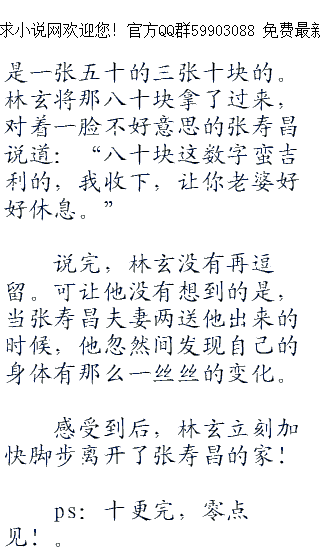 求小说网欢迎您！官方QQ群59903088 免费最新
是一张五十的三张十块的。
林玄将那八十块拿了过来，
对着一脸不好意思的张寿昌
说道：“八十块这数字蛮吉
利的，我收下，让你老婆好
好休息。”
说完，林玄没有再逗
留。可让他没有想到的是，
当张寿昌夫妻两送他出来的
时候，他忽然间发现自己的
身体有那么一丝丝的变化。
感受到后，林玄立刻加
快脚步离开了张寿昌的家！
ps：十更完，零点
见！。